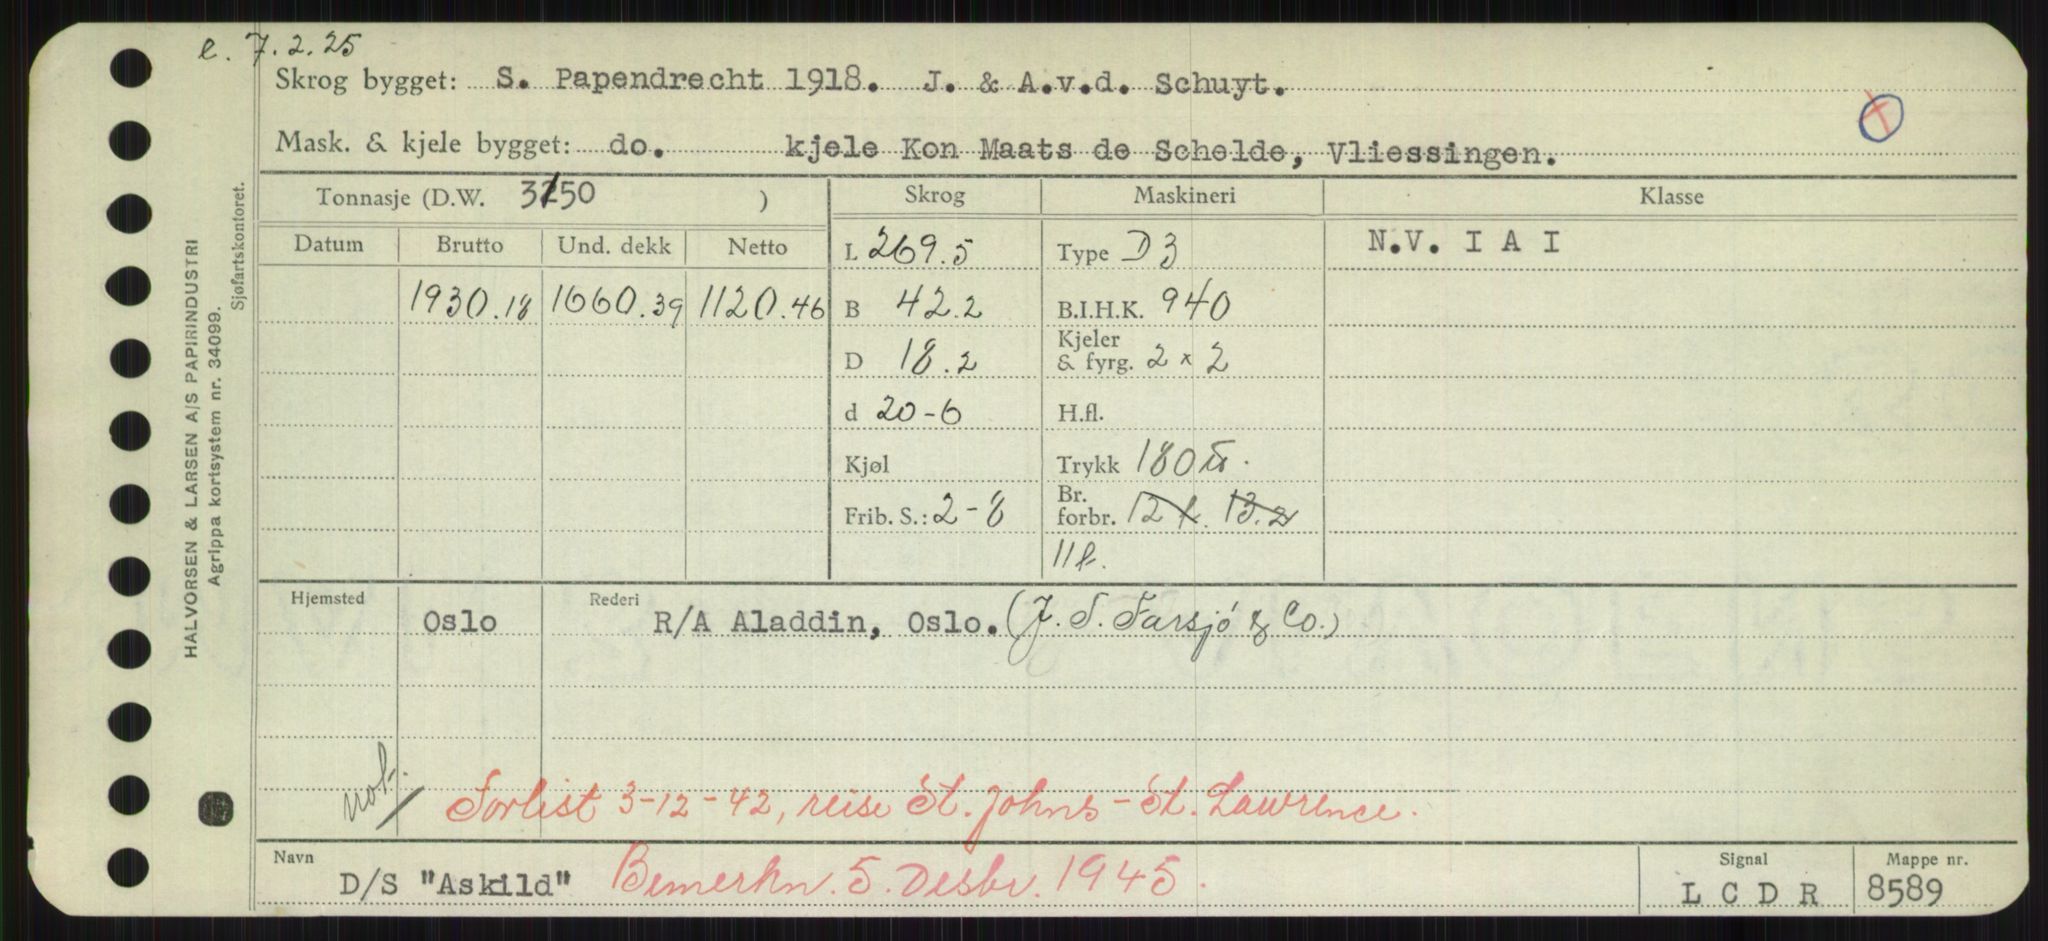 e. 7.2.25
Skrog bygget: S. Papendrecht 1918. J. & A.v.d. Schuyt.
Mask. & kjele bygget: do. kjele Kon Maats de Schelde, Vliessingen.
Tonnasje (D.W. 3150 )
Skrog Maskineri Klasse
Datum Brutto Und. dekk Netto
L 269.5 Type D3 N.V. I A I
1930.18 1660.39 1120.46 B 42.2 B.I.H.K. 940
D 18.2 Kjeler & fyrg. 2 x 2
d 20-6 H.fl.
Kjøl Trykk 180
Frib. S.: 2-8 Br. forbr. 12 t. 13.2
11 t.
Hjemsted Oslo Rederi R/A Aladdin, Oslo. (J. S. Farsjö & Co.)
not.
Forlist 3-12-42, reise St. Johns - St. Lawrence.
Navn D/S "Askild" Bemerkn. 5. Desbr. 1945.
Signal L C D R
Mappe nr. 8589
HALVORSEN & LARSEN A/S PAPIRINDUSTRI
Agrippa kortsystem nr. 34099.
Sjøfartskontoret.